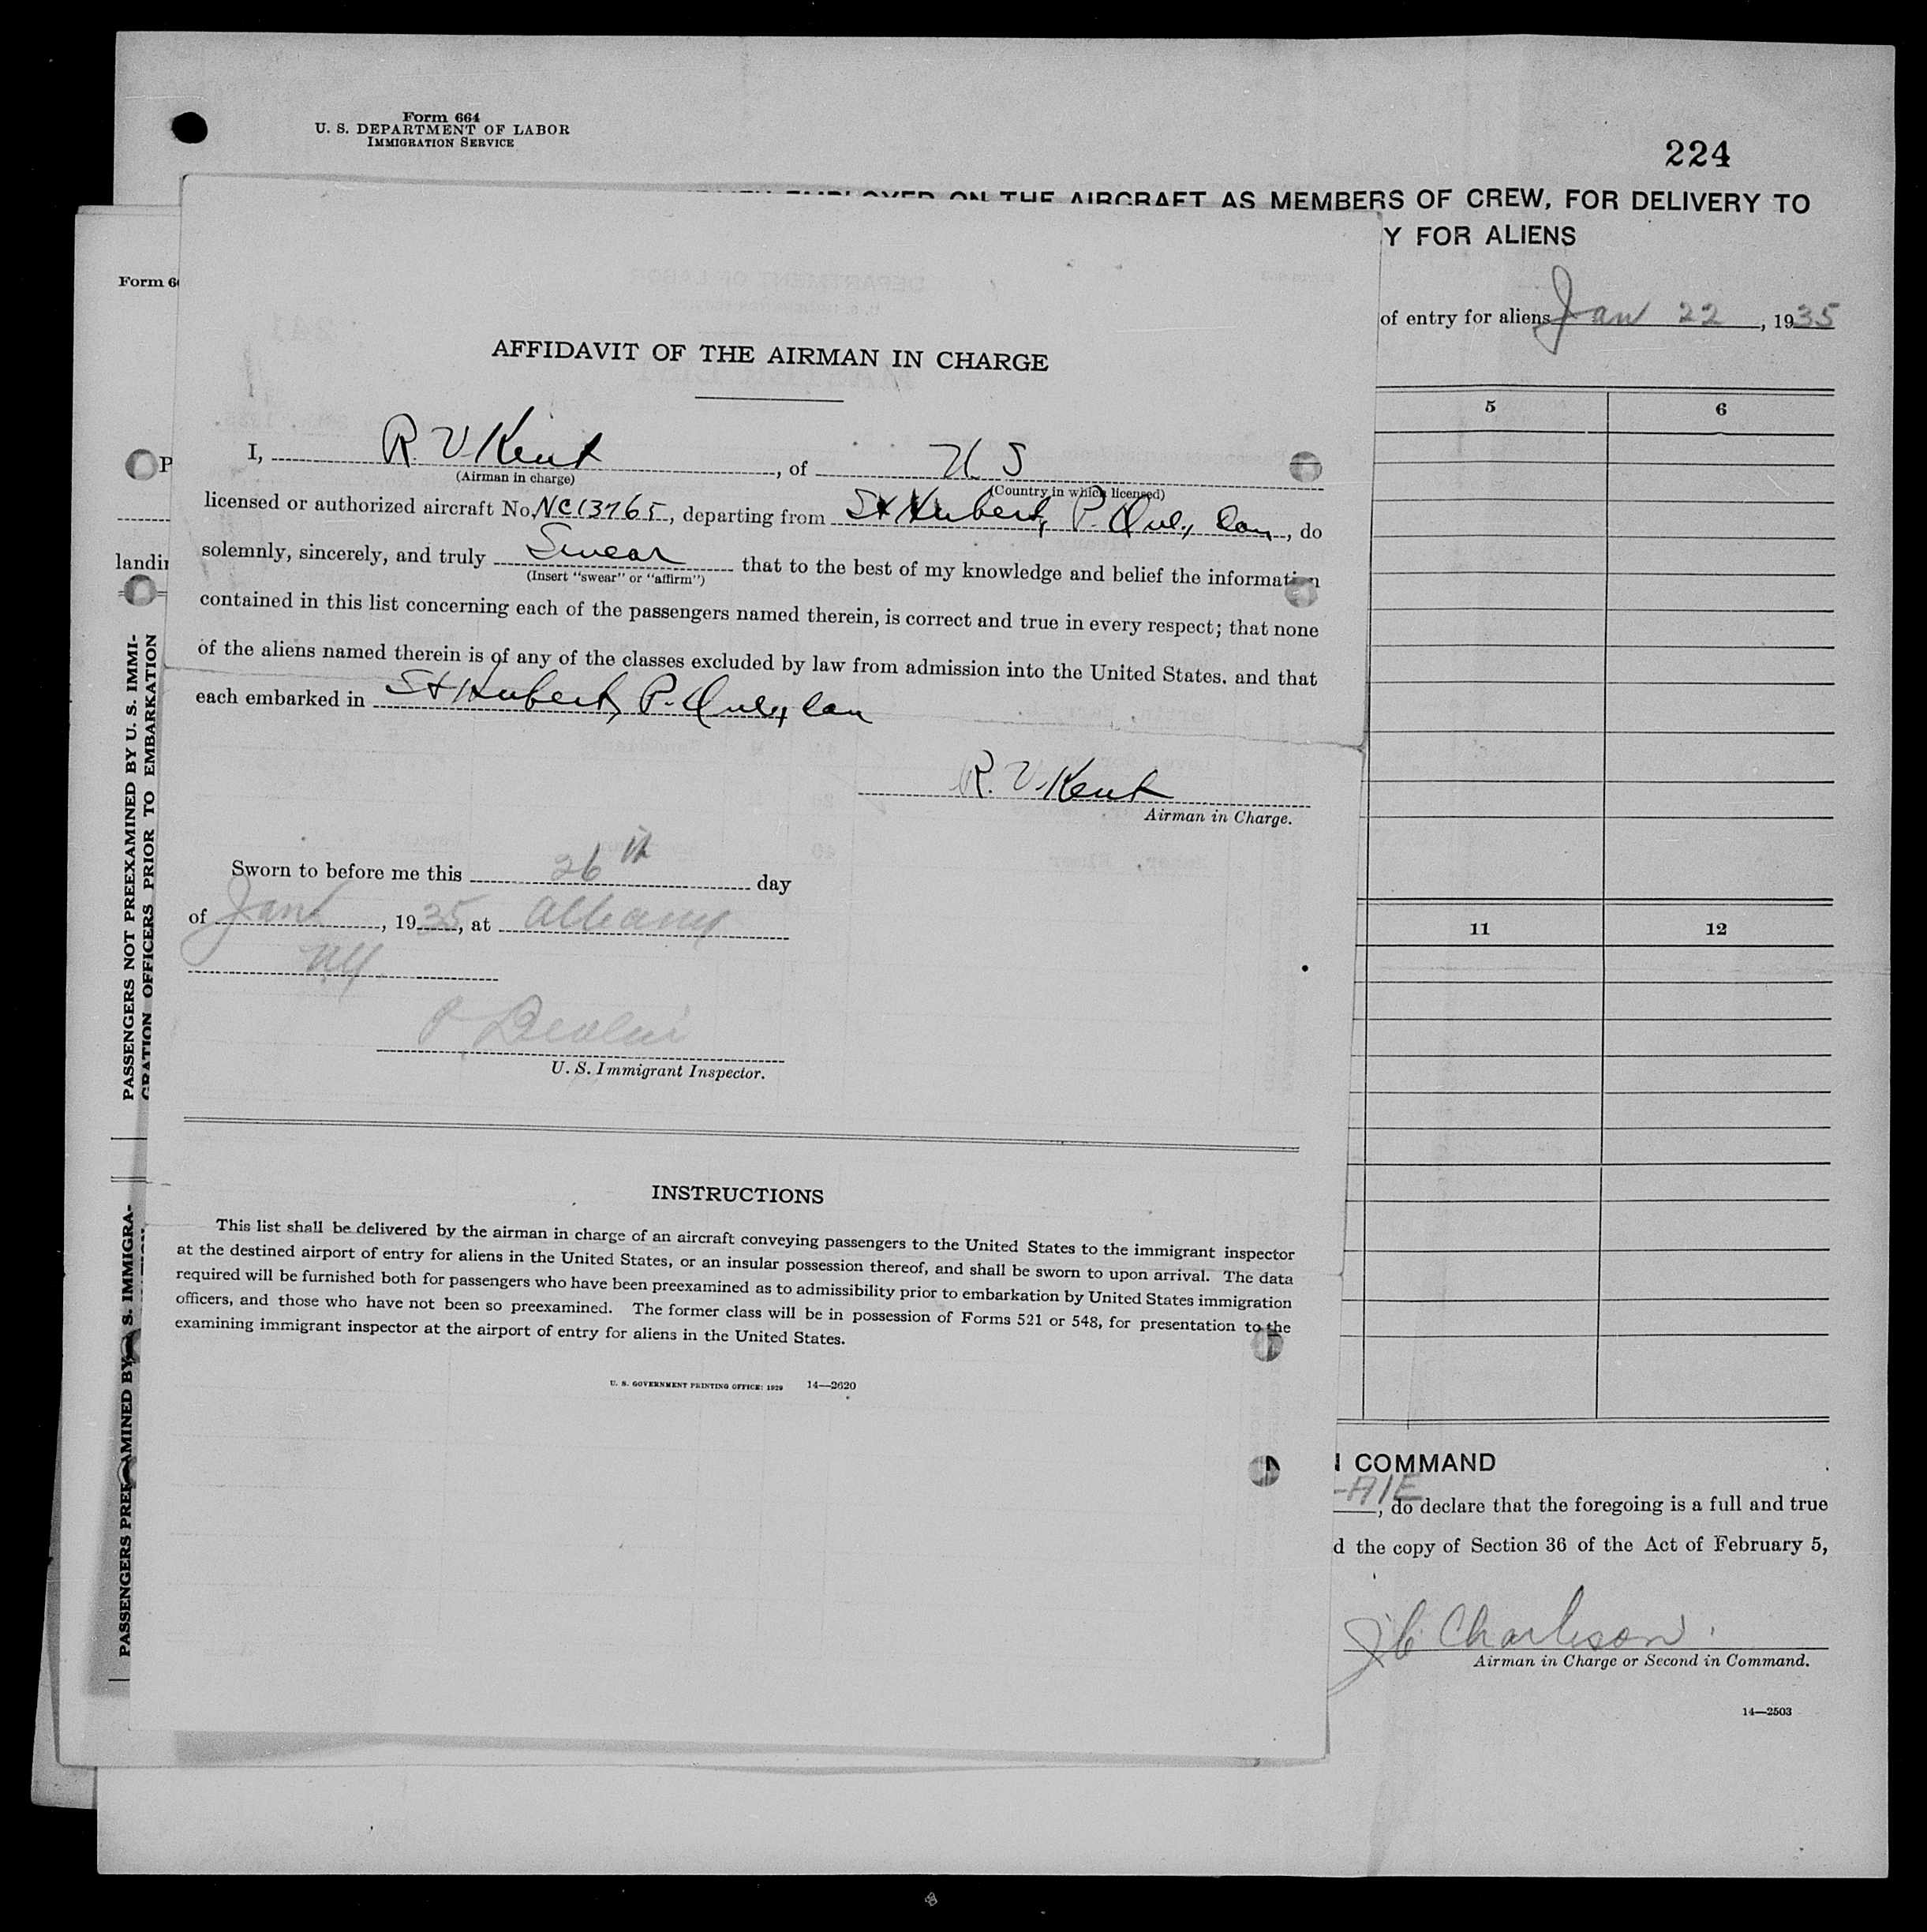 Form 664
U. S. DEPARTMENT OF LABOR
IMMIGRATION SERVICE
224
EMPLOYED ON THE AIRCRAFT AS MEMBERS OF CREW, FOR DELIVERY TO
Y FOR ALIENS
of entry for aliens Jan 22, 1935
5 6
11 12
COMMAND
-A1E
, do declare that the foregoing is a full and true
d the copy of Section 36 of the Act of February 5,
J C Charleson.
Airman in Charge or Second in Command.
14—2503
Form 66
P
landin
PASSENGERS NOT PREEXAMINED BY U. S. IMMI-
GRATION OFFICERS PRIOR TO EMBARKATION
PASSENGERS PREEXAMINED BY S. IMMIGRA-
AFFIDAVIT OF THE AIRMAN IN CHARGE
I, R V Kent, of U S
(Airman in charge) (Country in which licensed)
licensed or authorized aircraft No. NC13765, departing from St Hubert, P. Que, Can, do
solemnly, sincerely, and truly Swear that to the best of my knowledge and belief the information
(Insert "swear" or "affirm")
contained in this list concerning each of the passengers named therein, is correct and true in every respect; that none
of the aliens named therein is of any of the classes excluded by law from admission into the United States, and that
each embarked in St Hubert, P. Que, Can
R. V. Kent
Airman in Charge.
Sworn to before me this 26th day
of Jan, 1935, at Albany
NY
U. S. Immigrant Inspector.
INSTRUCTIONS
This list shall be delivered by the airman in charge of an aircraft conveying passengers to the United States to the immigrant inspector
at the destined airport of entry for aliens in the United States, or an insular possession thereof, and shall be sworn to upon arrival. The data
required will be furnished both for passengers who have been preexamined as to admissibility prior to embarkation by United States immigration
officers, and those who have not been so preexamined. The former class will be in possession of Forms 521 or 548, for presentation to the
examining immigrant inspector at the airport of entry for aliens in the United States.
U. S. GOVERNMENT PRINTING OFFICE: 1929 14—2620